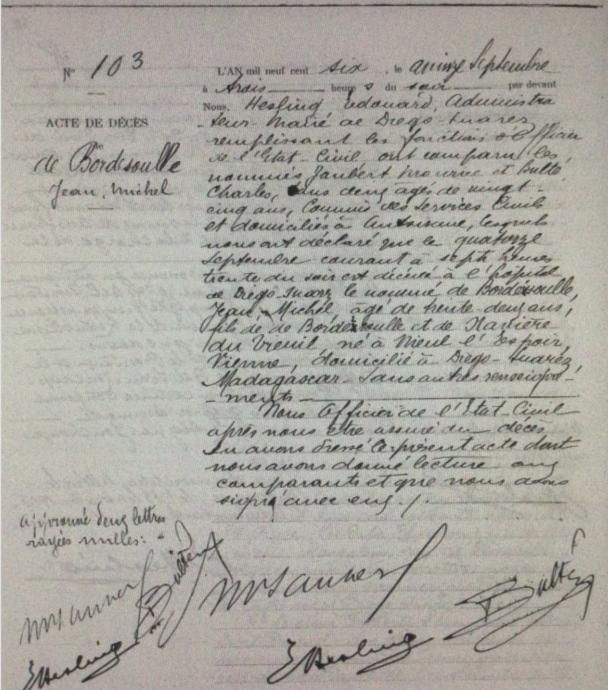 N° 103
ACTE DE DÉCÈS
de Bordesoulle
Jean, Michel
L'AN mil neuf cent six, le quinze Septembre
à trois heures du soir par devant
Nous, Hesling Edouard, Administra
-teur-Maire de Diego-Suarez
remplissant les fonctions d'Officier
de l'Etat-Civil, ont comparu les
nommés Jaubert et Bulté
Charles, tous deux âgés de vingt-
cinq ans, Commis des Services Civils
et domiciliés à Antsirane, lesquels
nous ont déclaré que le quatorze
Septembre courant à sept heures
trente du soir est décédé à l'hôpital
de Diego Suarez le nommé de Bordesoulle,
Jean, Michel, âgé de trente-deux ans,
fils de de Bordesoulle et de
du Vreuil né à l'Espoir,
Vienne, domicilié à Diego-Suarez
Madagascar - Sans autres renseigne-
-ments
Nous Officier de l'Etat-Civil
après nous être assuré du décès
en avons dressé le présent acte dont
nous avons donné lecture aux
comparants et que nous avons
signé avec eux ./.
Approuvé deux lettres
rayées nulles:
Bulté
EHesling
EHesling
Bulté